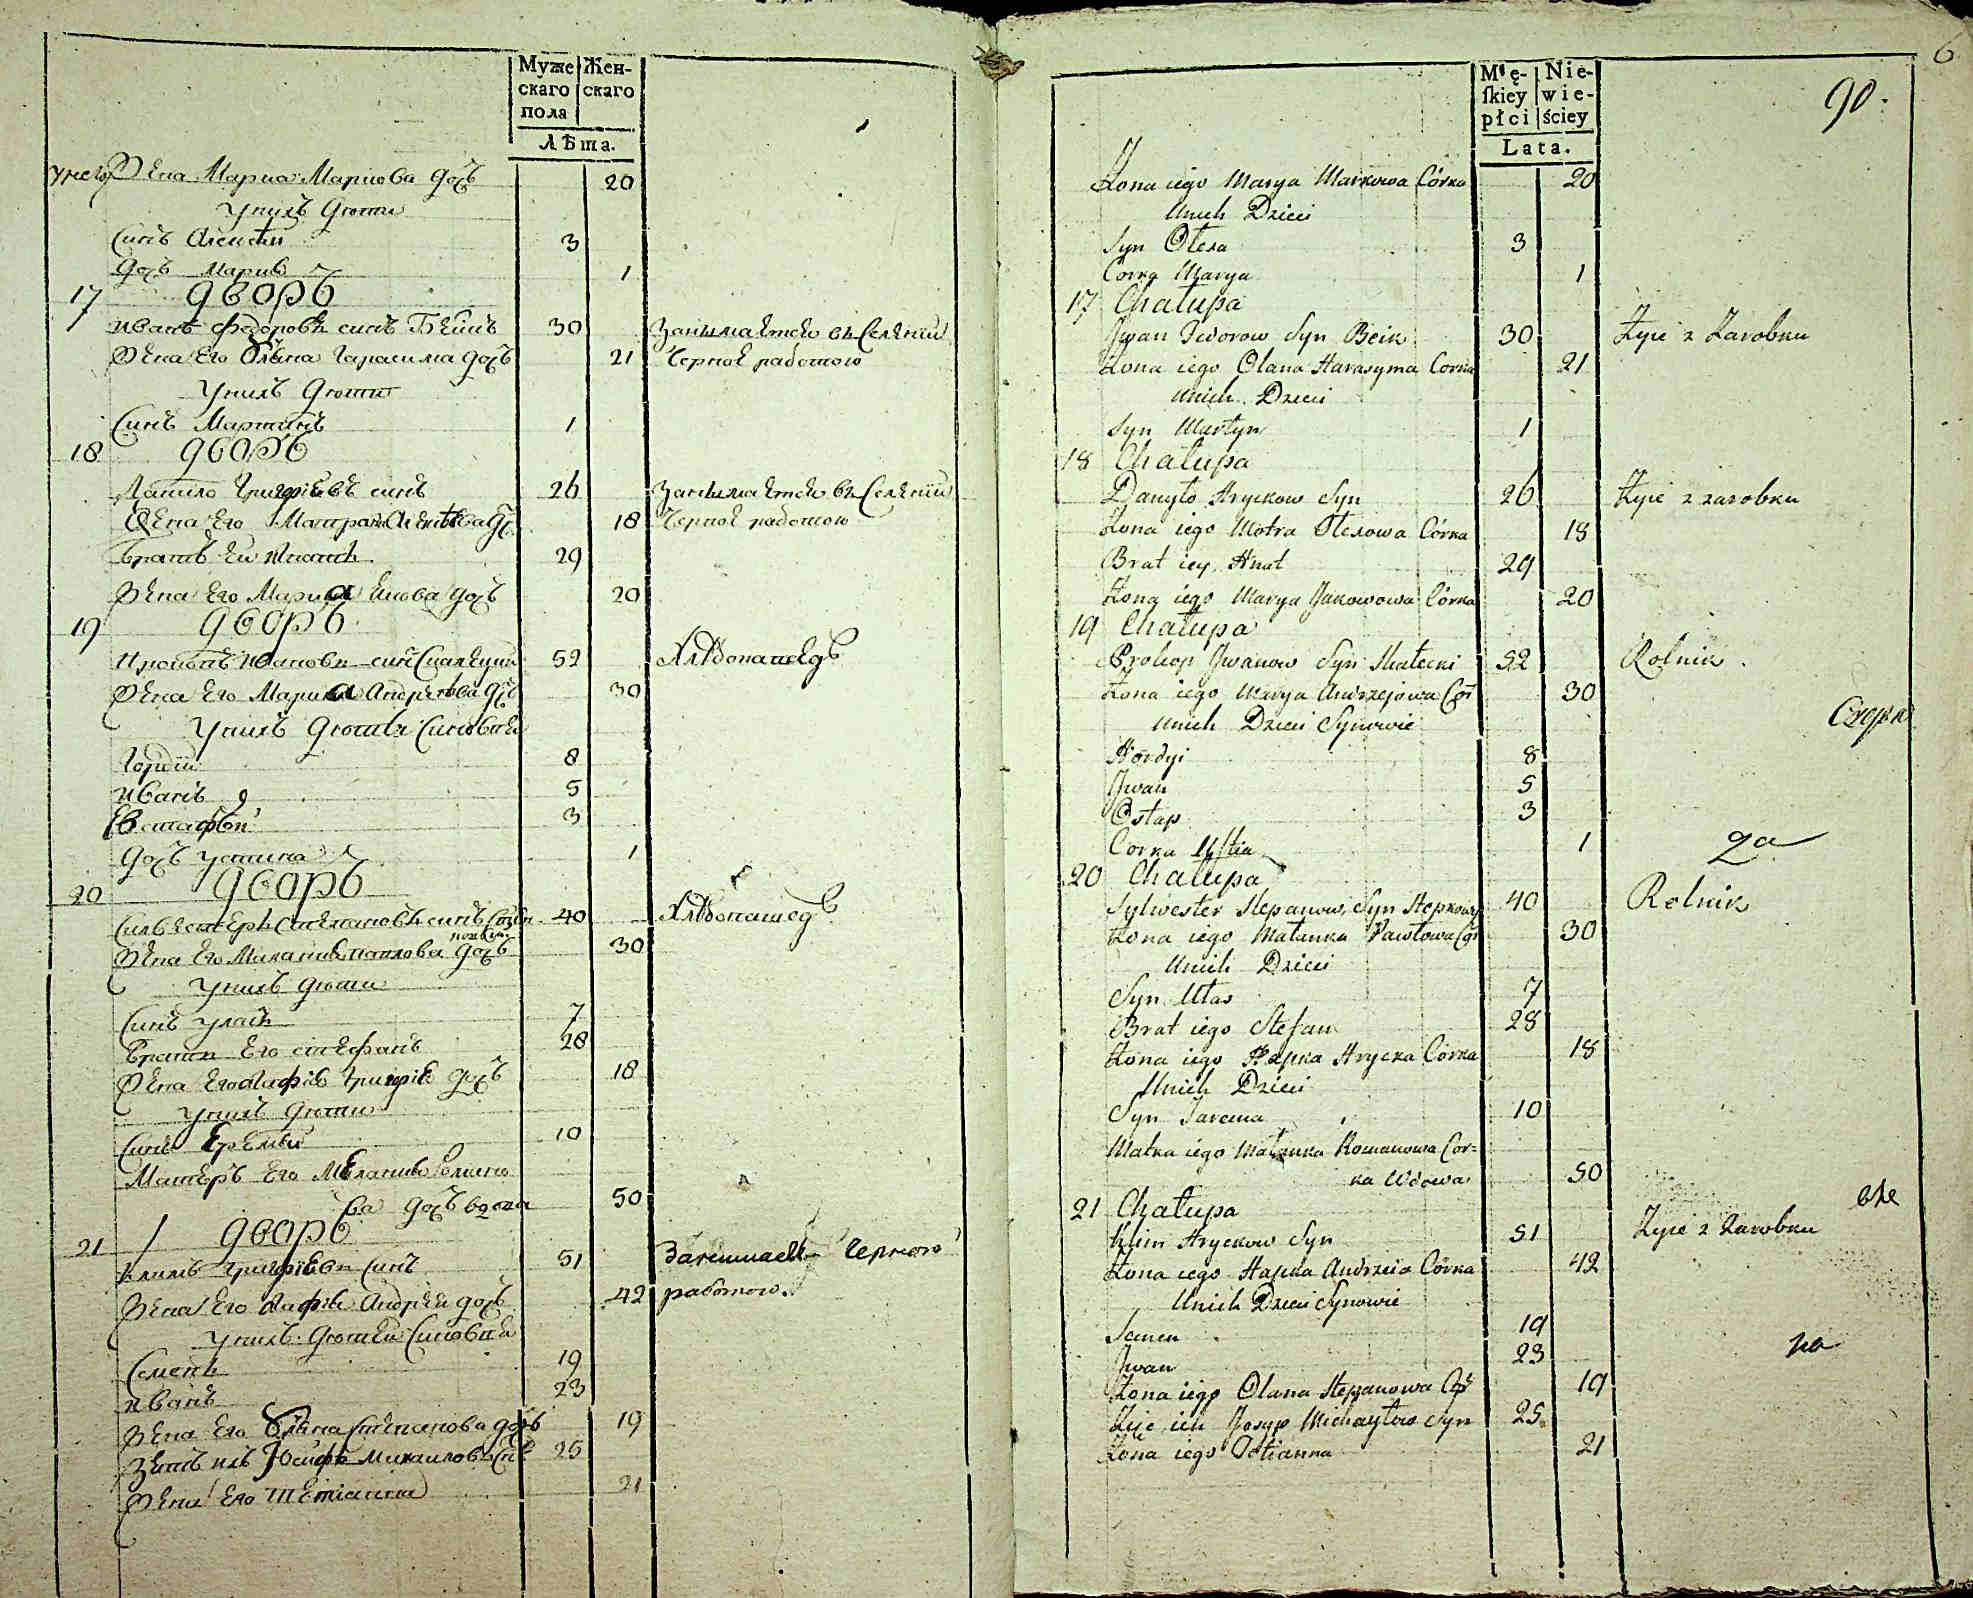 Муже
скаго
пола
Жен-
скаго
лѣта.
унего Жена Мариа Маркова дочъ 20
Унихъ дѣти
Синъ Алексѣй 3
дочъ Мариа 1
17 дворъ
Иванъ Федоровъ синъ Бѣикъ 30 Занимаетса въ Селении
Жена Его Олѣна Гарасима дочъ 21 Черною работою
Унихъ дѣти
Синъ Мартинъ 1
18 дворъ
Данило Григориевъ синъ 26 Занимаетса въ Селении
Жена Его Матрона 18 Черною работою
Братъ Ей Игнатъ 29
Жена Его Мариа дочъ 20
19 дворъ
Прокопъ Ивановъ синъ 52 Хлѣбопашецъ
Жена Его Мариа Андрѣева дочъ 30
Унихъ дѣти Синовиа
Гордий 8
Иванъ 5
Евстафѣй 3
дочъ Устина 1
20 дворъ
Силвестеръ Степановъ синъ 40 Хлѣбопашецъ
Жена Его Маланиа Павлова дочъ 30
Унихъ дѣти
Синъ Уласъ 7
Братъ Его Стефанъ 28
Жена Его Агафиа Григориа дочъ 18
Унихъ дѣти
Синъ Еремѣй 10
Матеръ Его Меланиа Романо
ва дочъ вдова 50
21 дворъ
Климъ Григориевъ Синъ 51 Занимаетса Черною
Жена Его Агафиа Андрѣа дочъ 42 работою.
Унихъ дѣти Синовиа
Семенъ 19
Иванъ 23
Жена Его Олѣна Степанова дочъ 19
Зятъ ихъ Иосифъ Михаиловъ Синъ 25
Жена Его Тетианна 21
6
90.
Męs-
skiey
płci
Nie-
wie-
ściey
Lata.
Zona iego Marya Markowa Córka 20
Unich Dzieci
Syn Olexa 3
Corka Marya 1
17 Chałupa
Jwan Fedorow Syn Beik 30 Zyie z Zarobku
Zona iego Olana Harasyma Corka 21
Unich Dzieci
Syn Martyn 1
18 Chałupa
Danyło Hryckow Syn 26 Zyie z zarobku
Zona iego Motra Olexowa Córka 18
Brat iey Hnat 29
Zona iego Marya Jakowowa Córka 20
19 Chałupa
Prokop Jwanow Syn Skałecki 52 Rolnik.
Zona iego Marya Andrzejowa Cór 30
Unich Dzieci Synowie
Hordyi 8
Jwan 5
Ostap 3
Corka Ustia 1
20 Chałupa
Sylwester Stepanow Syn Stepkowy 40 Rolnik
Zona iego Małanka Pawłowa Cór 30
Unich Dzieci
Syn Ułas 7
Brat iego Stefan 28
Zona iego Hapka Hrycka Córka 18
Unich Dzieci
Syn Jarema 10
Matka iego Małanka Romanowa Cor-
ka Wdowa 50
21 Chałupa
Klim Hryckow Syn 51 Zyie z Zarobku
Zona iego Hapka Andrzeia Córka 42
Unich Dzieci Synowie
Semen 19
Jwan 23
Zona iego Olana Stepanowa Cór 19
Zięć ich Josyp Michayłow Syn 25
Zona iego Tatianna 21